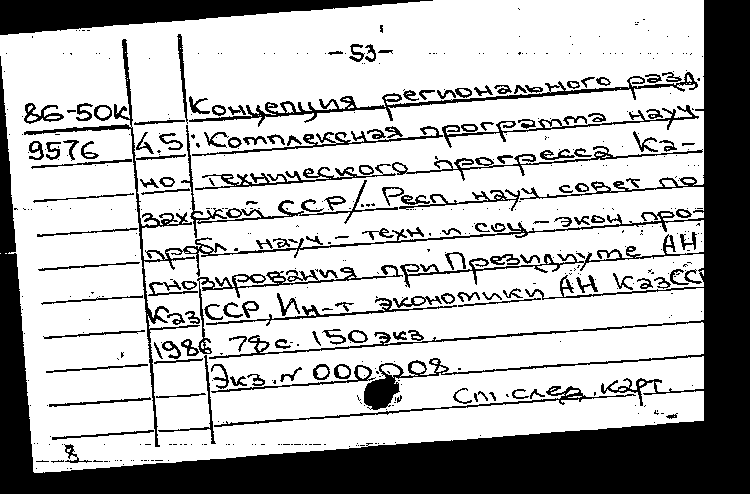 -53-
86-50к Концепция регионального разд.
9576 4.5: Комплексная программа науч-
но-технического прогресса Ка-
захской ССР/... Респ. науч. совет по
пробл. науч.-техн. и соц.-экон. про-
гнозирования при Президиуме АН
КазССР, Ин-т экономики АН КазССР
1986. 78 с. 150 экз.
Экз. N 000008.
См. след. карт.
8